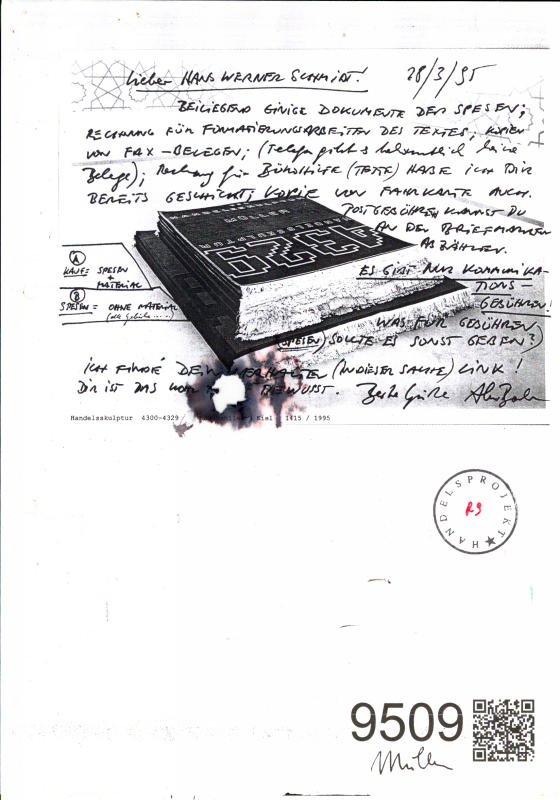 Lieber HANS WERNER SCHMIDT! 28/3/95
BEILIEGEND EINIGE DOKUMENTE DER SPESEN;
RECHNUNG FÜR FORMATIERUNGSARBEITEN DES TEXTES, KOPIEN
VON FAX-BELEGEN; (Telefon gibt's bekanntlich keine
Belege); Rechnung für Bürohilfe (TEXTE) HABE ICH DIR
BEREITS GESCHICKT, KOPIE VON FAHRKARTE AUCH.
POSTGEBÜHREN KANNST DU
AN DEN BRIEFMARKEN
ABZÄHLEN.
ES GIBT NUR KOMMUNIKA-
TIONS-
GEBÜHREN!
WAS FÜR GEBÜHREN
(SPESEN) SOLLTE ES SONST GEBEN?)
A
SPESEN
+
MATERIAL
B
SPESEN = OHNE MATERIAL
MÜLLER
ICH FINDE DEIN VERHALTEN (IN DIESER SACHE) LINK!
DIR IST DAS BEWUSST. Beste Grüße
Handelsskulptur 4300-4329 / Kiel 1415 / 1995
HANDELSPROJEKT ★
R9
9509
Müller